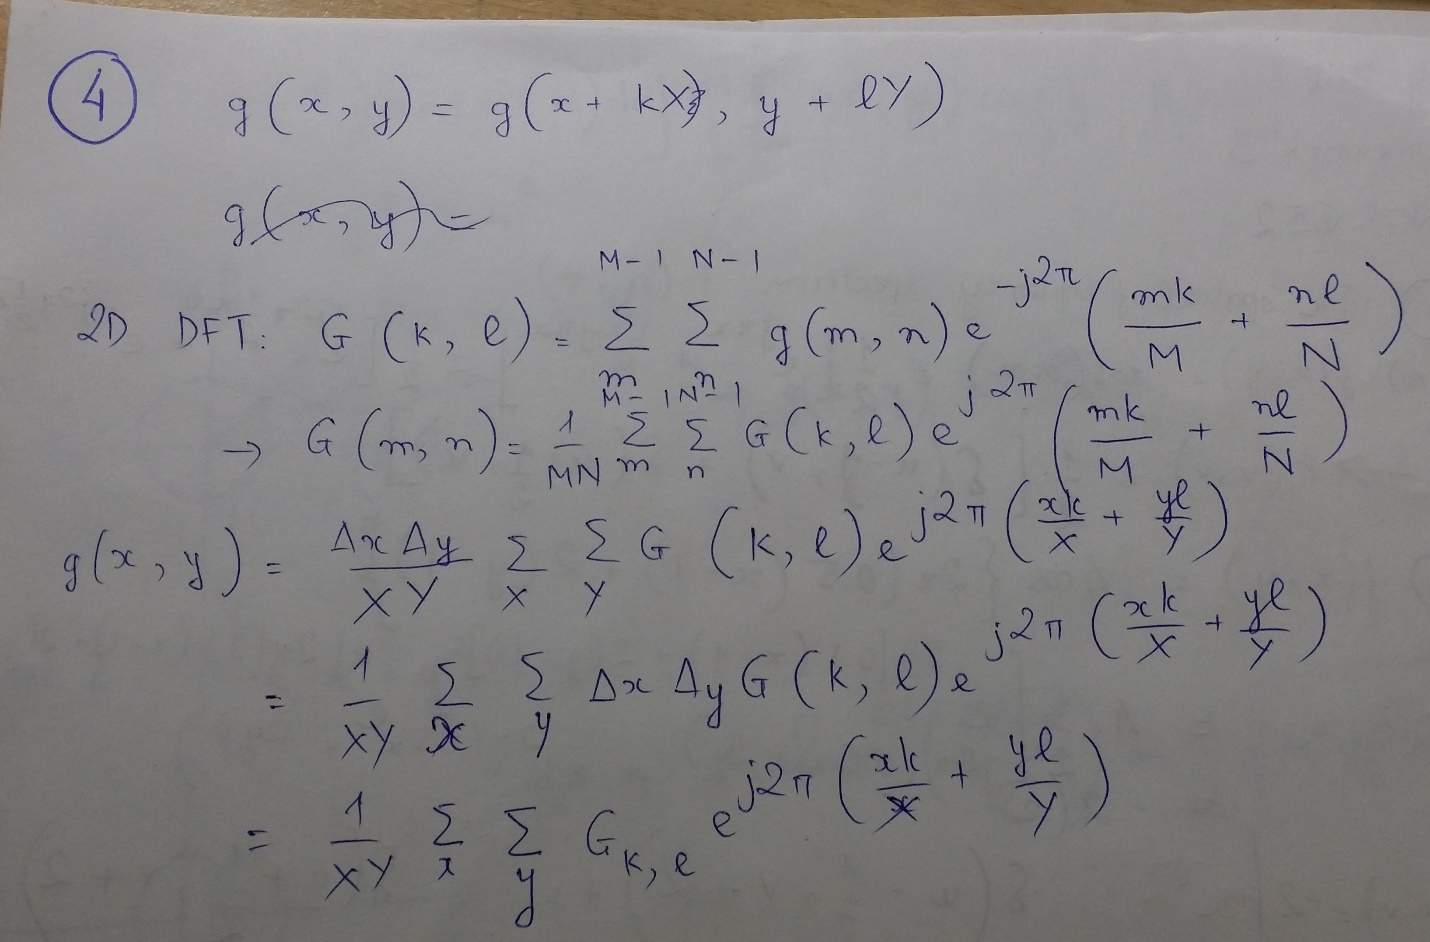 ④ g(x, y) = g(x + kX, y + lY)
g(x, y) =
2D DFT: G(k, l) = Σ_m^{M-1} Σ_n^{N-1} g(m, n) e^{-j2π(mk/M + nl/N)}
→ G(m, n) = 1/MN Σ_m^{M-1} Σ_n^{N-1} G(k, l) e^{j2π(mk/M + nl/N)}
g(x, y) = ΔxΔy/XY Σ_X Σ_Y G(k, l) e^{j2π(xk/X + yl/Y)}
= 1/XY Σ_x Σ_y Δx Δy G(k, l) e^{j2π(xk/X + yl/Y)}
= 1/XY Σ_x Σ_y G_{k, l} e^{j2π(xk/X + yl/Y)}